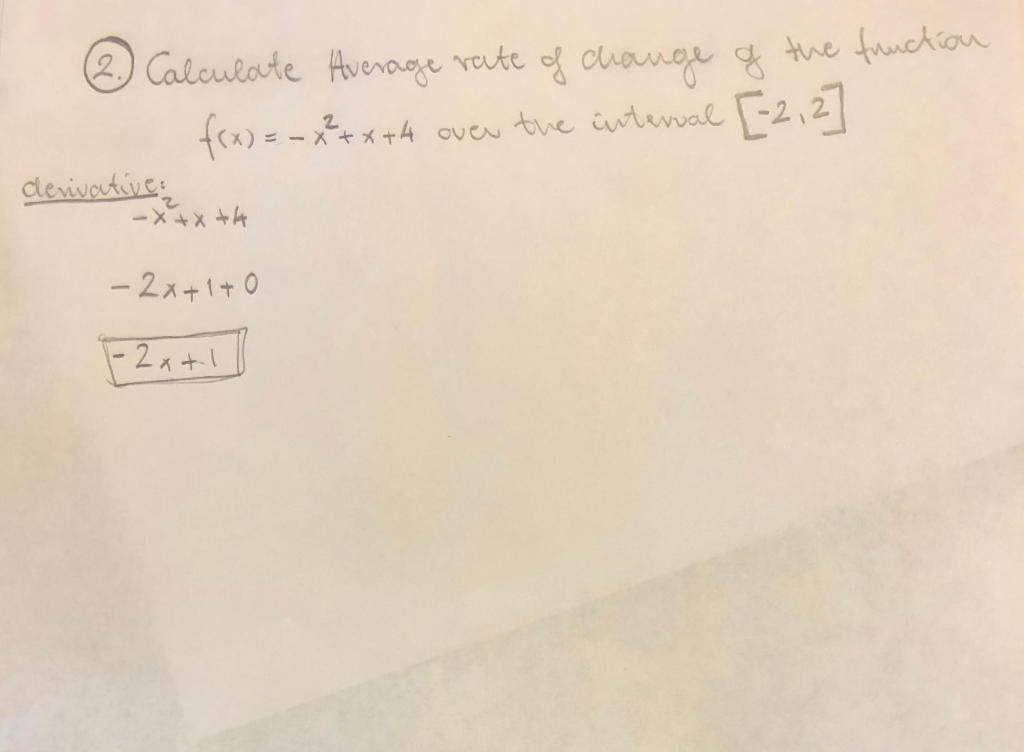 2. Calculate Average rate of change of the function
f(x) = -x² + x + 4 over the interval [-2, 2]
derivative:
-x² + x + 4
-2x + 1 + 0
-2x + 1